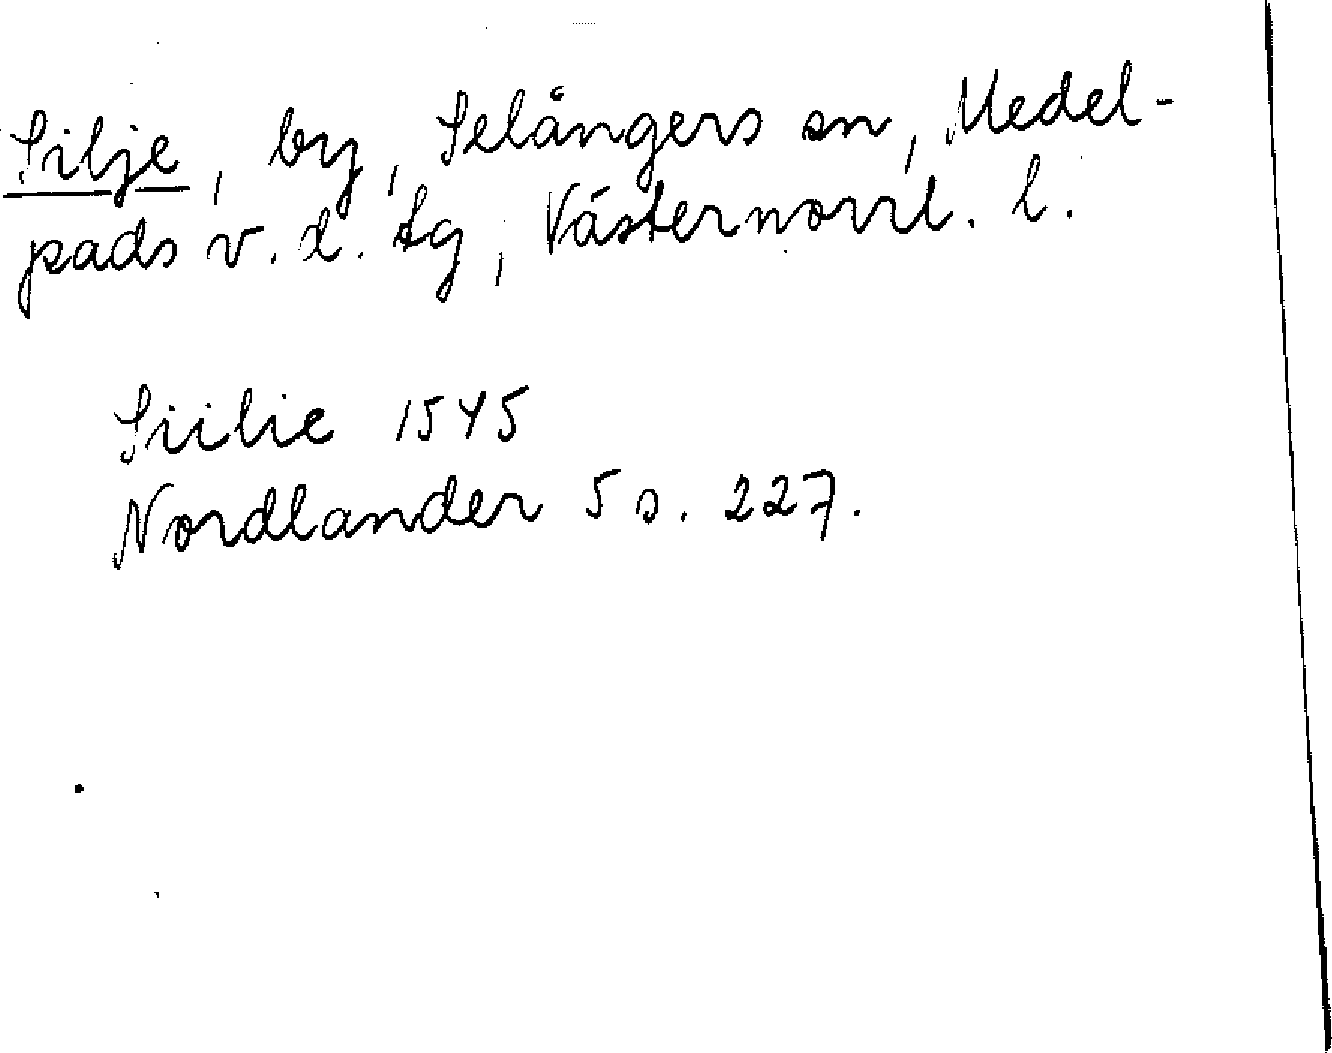 Silje, by, Selångers sn, Medel-
pads v. d. tg, Västernorrl. l.
Siilie 1545
Nordlander 5 s. 227.